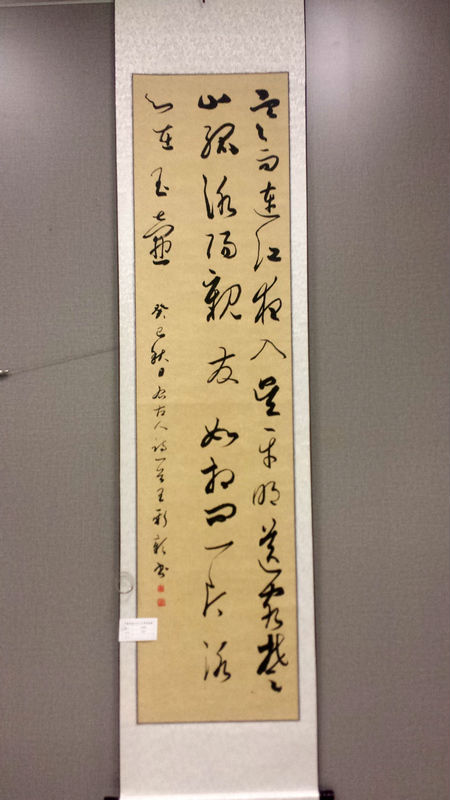 寒雨連江夜入吳平明送客楚
山孤洛陽親友如相問一片冰
心在玉壺 癸巳秋日 古人詩一首王彩 書